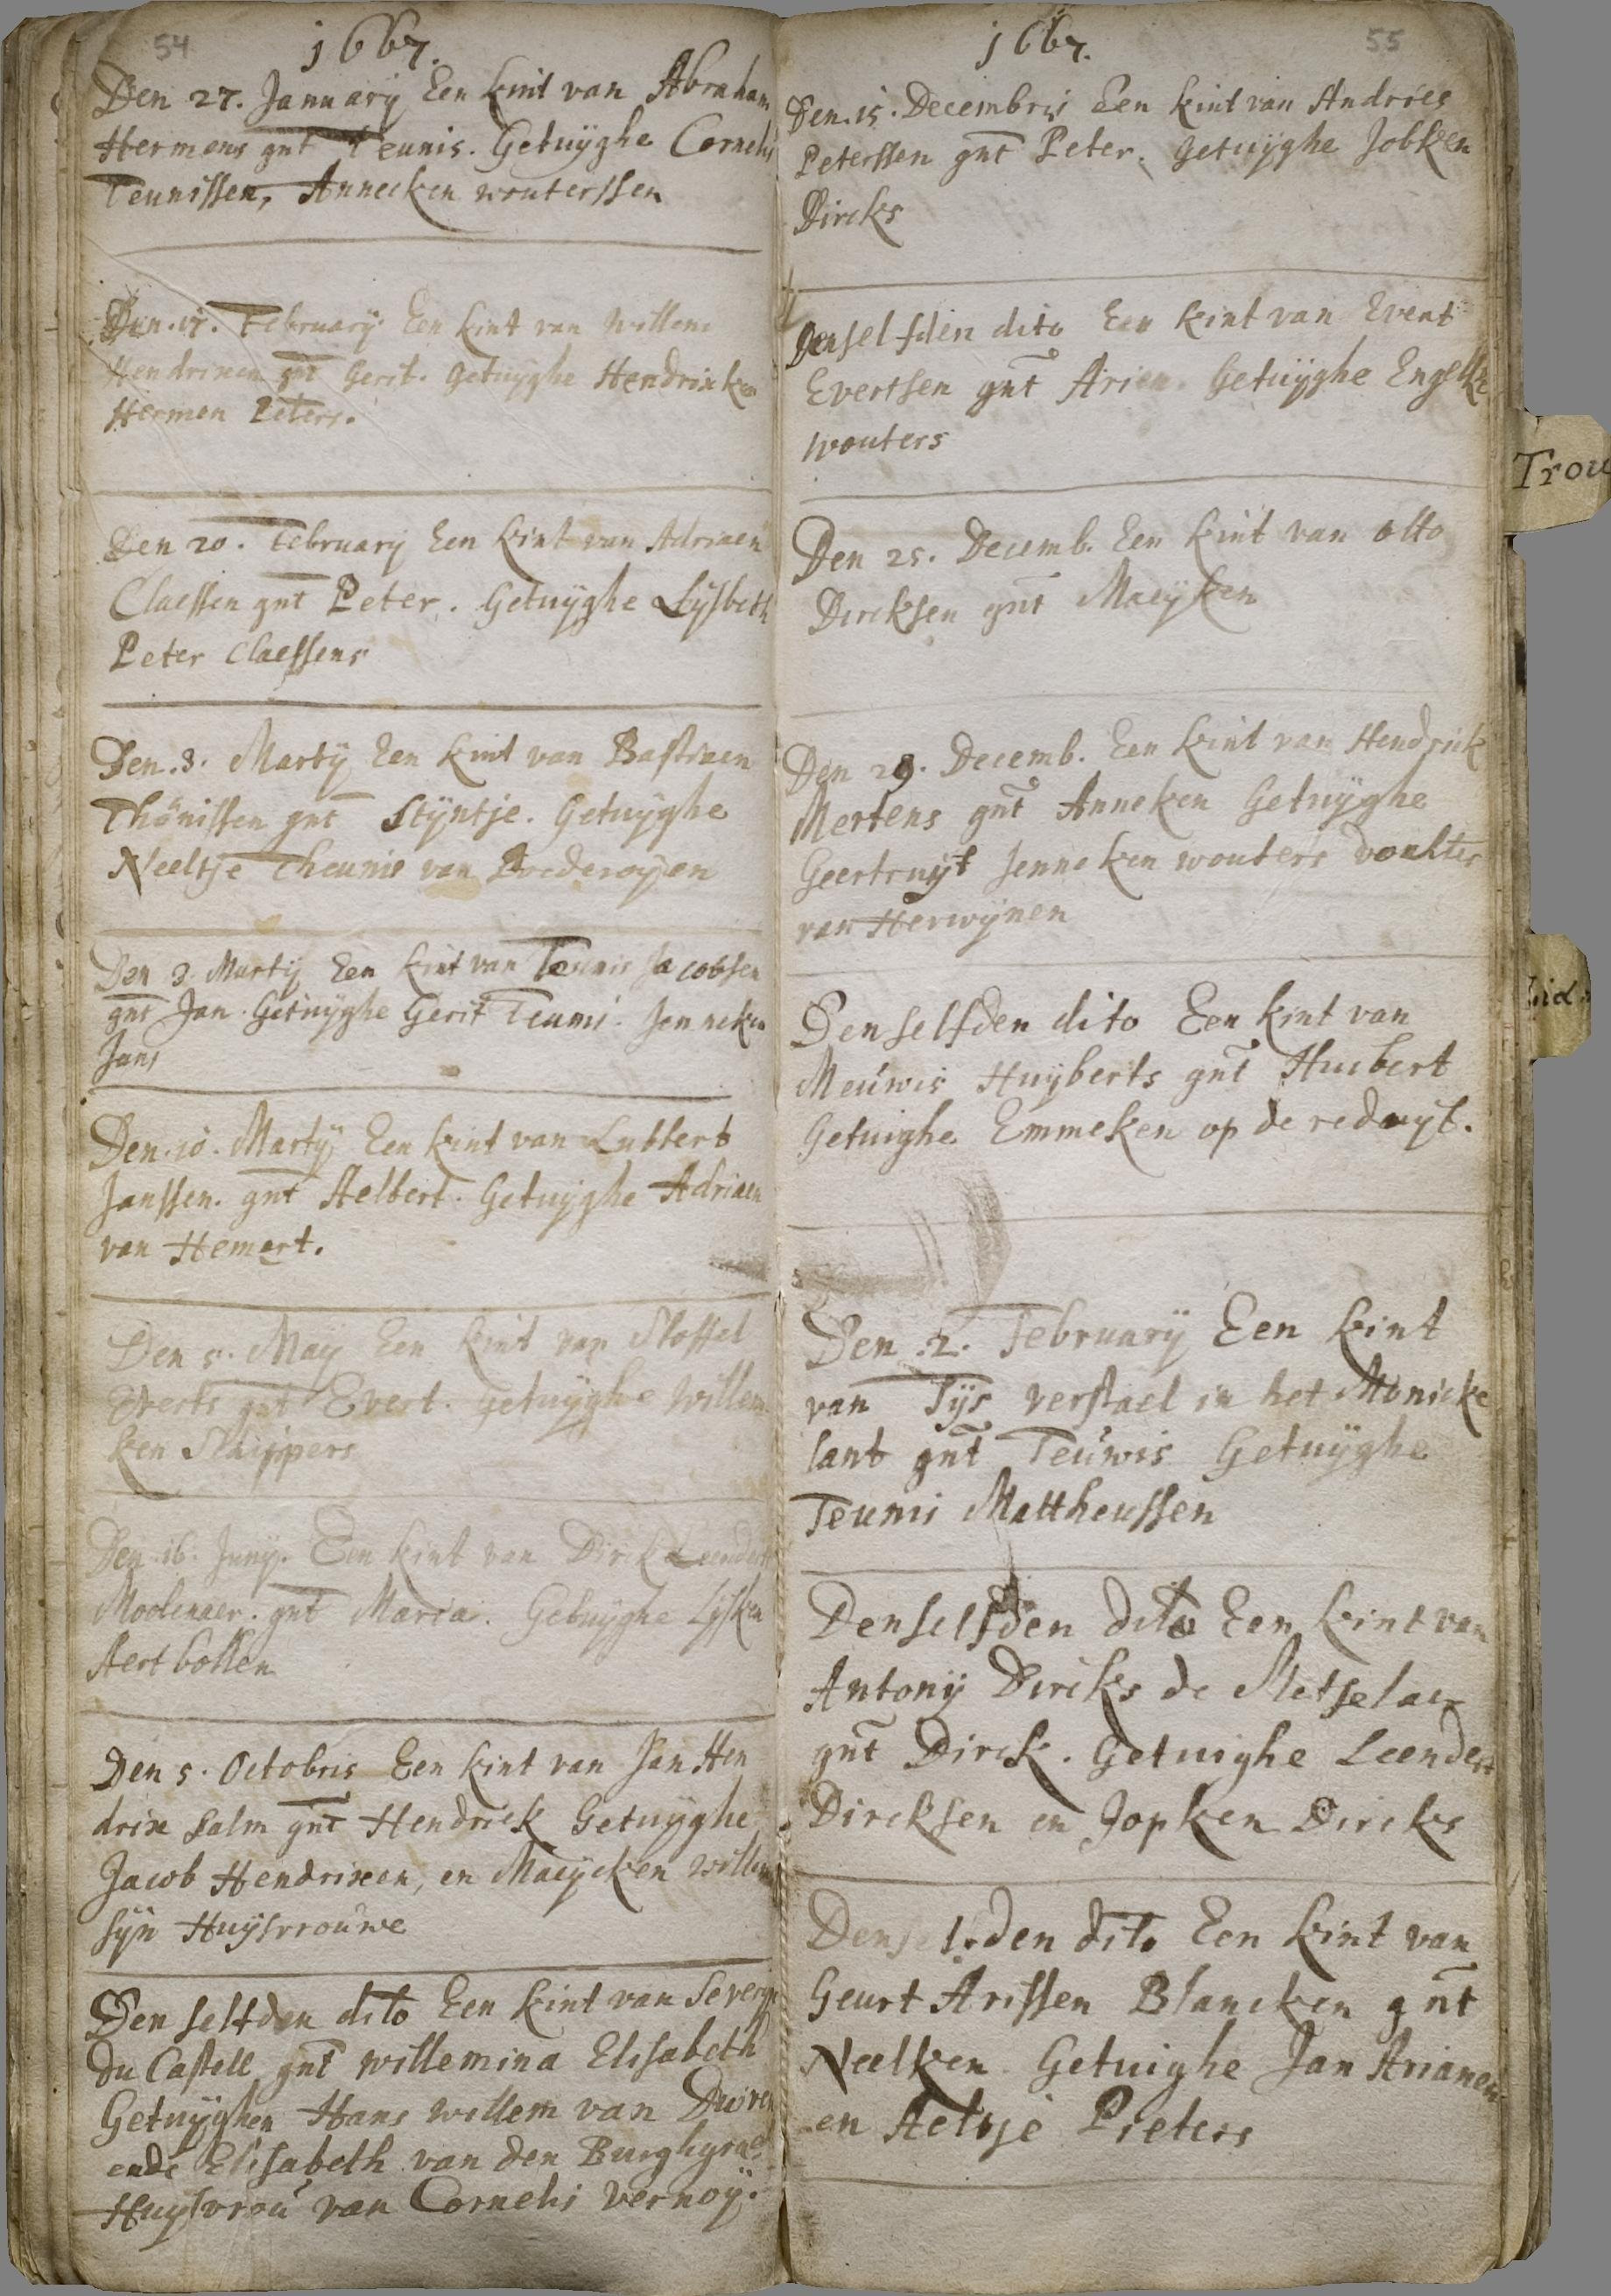 54
1667.
Den 27. January Een kint van Abraham
Hermens gnt Teunis. Getuÿghe Cornelis
Teunissen, Annecken wouterssen
Den. 17. February Een kint van Willem
Hendrixen gnt Gerit. Getuÿghe Hendrixken
Hermen Peters.
Den 20. February Een kint van Adriaen
Claessen gnt Peter. Getuÿghe Lÿsbeth
Peter Claessens
Den. 3. Martÿ Een kint van Bastiaen
Thönissen gnt Stÿntje. Getuÿghe
Neeltje Theunis van Brederoÿen
Den 3. Martÿ Een kint van Teunis Jacobsen
gnt Jan. Getuÿghe Gerit Teunis. Jenneken
Jans
Den. 10. Martÿ Een kint van Lubbert
Janssen. gnt Aelbert. Getuÿghe Adriaen
van Hemert.
Den 5. Maÿ Een kint van Stoffel
Everts gnt Evert. Getuÿghe Willem
ken Schippers
Den. 16. Junÿ. Een kint van Dirck Leenderts
Moolenaer. gnt Maria. Getuÿghe Lÿsken
Aert bollen
Den 5. Octobris Een kint van Jan Hen
drix Salm gnt Hendrick Getuÿghe
Jacob Hendrixen, en Maeÿcken Willems
sÿn Huÿsvrouwe
Den selfden dito Een kint van Severÿn
du Castell gnt willemina Elisabeth
Getuÿghen Hans willem van Duiren
ende Elisabeth van den Burghgraef
Huÿsvrou van Cornelis vernoÿ.
55
1667.
Den. 15. Decembris Een kint van Andries
Peterssen gnt Peter. Getuÿghe Jobken
Dircks
Denselfden dito Een kint van Evert
Evertsen gnt Arien. Getuÿghe Engelke
wouters
Den 25. Decemb. Een kint van Otto
Dircksen gnt Maeÿken
Den 29. Decemb. Een kint van Hendrick
Mertens gnt Anneken Getuÿghe
Geertruÿt Jenneken wouters dochter
van Herwÿnen
Denselfden dito Een kint van
Meuwis Huÿberts gnt Huibert
Getuighe Emmeken op de reduÿt.
Den. 2. February Een kint
van Tÿs verstael in het Monicke
lant gnt Teuwis Getuÿghe
Teunis Mattheussen
Denselfden dito Een kint van
Antonÿ Dircks de Metselaer
gnt Dirck. Getuighe Leendert
Dircksen en Jopken Dircks
Denselfden dito Een kint van
Geurt Arissen Blancken gnt
Neelken Getuighe Jan Ariansen
en Aeltje Pieters
Trou